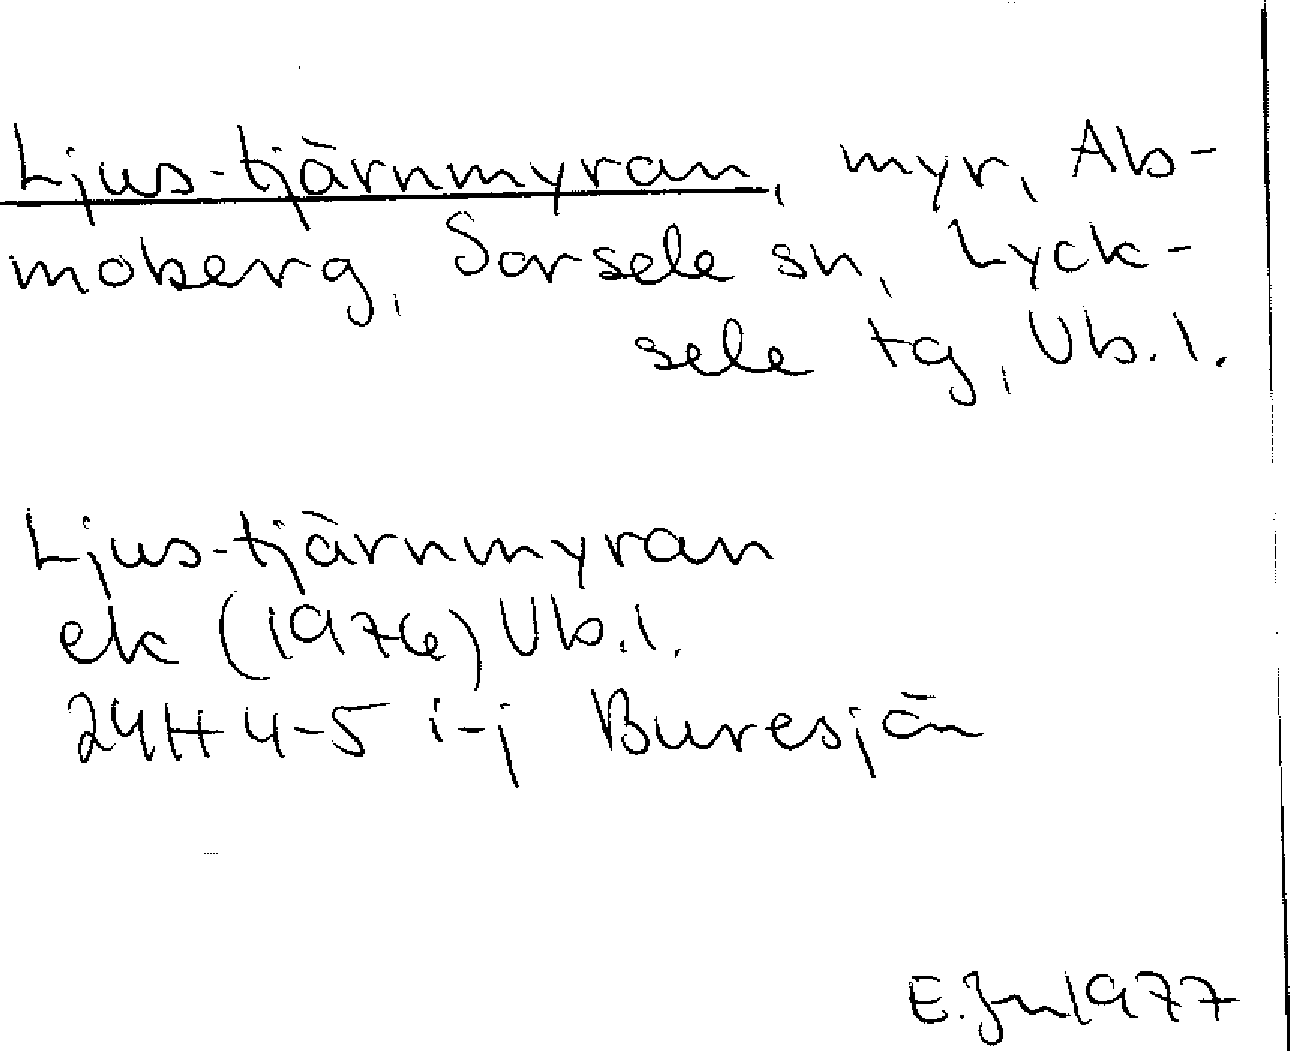 Ljus-tjärnmyran, myr, Ab-
moberg, Sorsele sn, Lyck-
sele tg, Vb.l.
Ljus-tjärnmyran
ek (1976) Vb.l.
24H 4-5 i-j Buresjön
E. Jn 1977